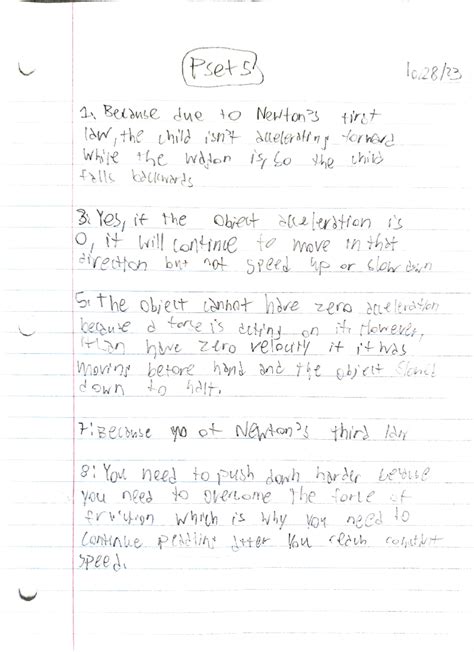 Pset 5
10/28/23
1. Because due to Newton's first
law, the child isn't accelerating forward
while the wagon is, so the child
falls backwards
3. Yes, if the object acceleration is
0, it will continue to move in that
direction but not speed up or slow down
5. The object cannot have zero acceleration
because a force is acting on it. However,
it can have zero velocity if it was
moving before hand and the object slowed
down to halt.
7: Because of Newton's third law
8: You need to push down harder because
you need to overcome the force of
friction which is why you need to
continue peddling after you reach constant
speed.